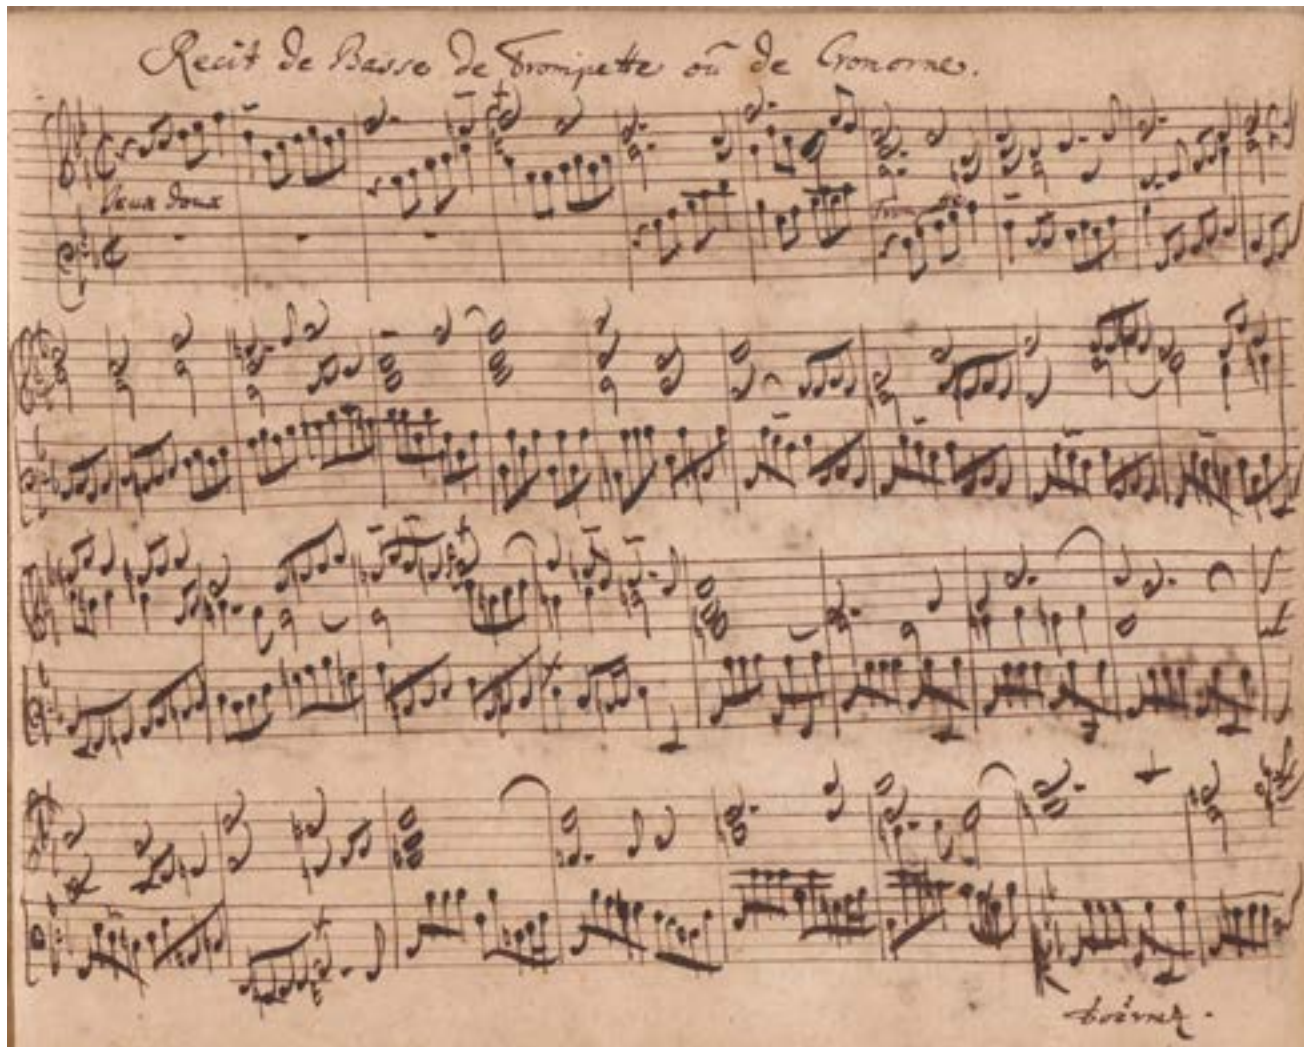 Recit de Basse de Trompette ou de Cromorne.
Jeux doux
Tromp